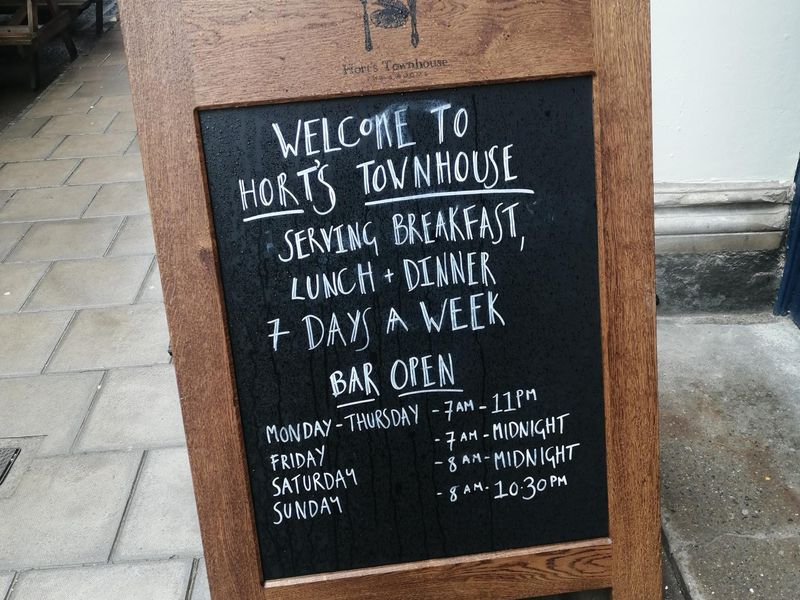 Hort's Townhouse
WELCOME TO
HORT'S TOWNHOUSE
SERVING BREAKFAST,
LUNCH + DINNER
7 DAYS A WEEK
BAR OPEN
MONDAY - THURSDAY - 7AM - 11PM
FRIDAY - 7AM - MIDNIGHT
SATURDAY - 8AM - MIDNIGHT
SUNDAY - 8AM - 10.30PM